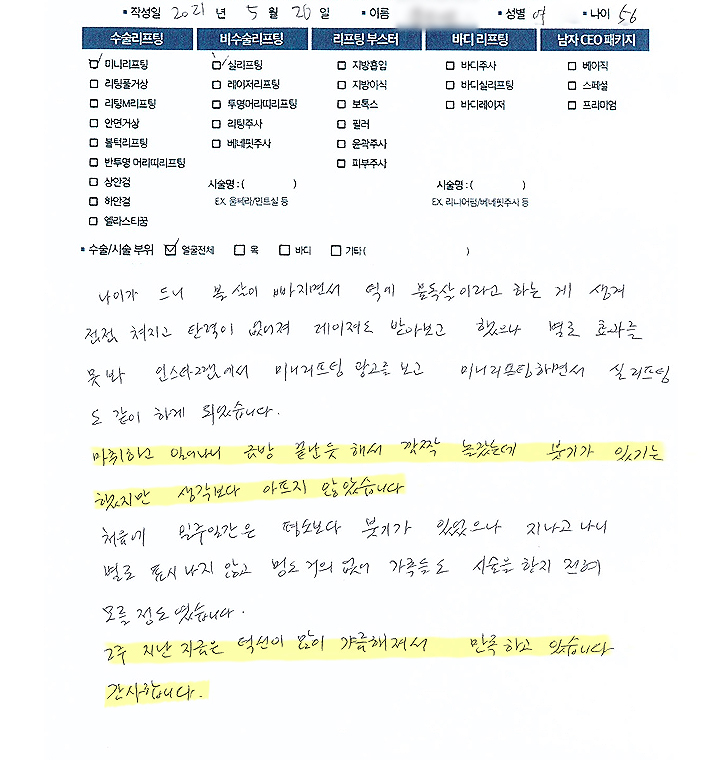 ▪ 작성일 2021 년 5 월 26 일 ▪ 이름 ▪ 성별 여 ▪ 나이 56
수술리프팅 비수술리프팅 리프팅 부스터 바디 리프팅 남자 CEO 패키지
미니리프팅 실리프팅 지방흡입 바디주사 베이직
리팅풀거상 레이저리프팅 지방이식 바디실리프팅 스페셜
리팅M리프팅 투명머리띠리프팅 보톡스 바디레이저 프리미엄
안면거상 리팅주사 필러
볼턱리프팅 베네핏주사 윤곽주사
반투명 머리띠리프팅 피부주사
상안검 시술명 : ( ) 시술명 : ( )
하안검 EX. 울쎄라/민트실 등 EX. 리니어펌/베네핏주사 등
엘라스티꿈
▪ 수술/시술 부위 얼굴전체 목 바디 기타( )
나이가 드니 볼살이 빠지면서 턱에 불독살이라고 하는 게 생겨
점점 쳐지고 탄력이 없어져 레이저도 받아보고 했으나 별로 효과를
못봐 인스타그램에서 미니리프팅 광고를 보고 미니리프팅하면서 실리프팅
도 같이 하게 되었습니다.
마취하고 일어나니 금방 끝난듯 해서 깜짝 놀랐는데 붓기가 있기는
했지만 생각보다 아프지 않았습니다
처음에 일주일간은 평소보다 붓기가 있었으나 지나고 나니
별로 표시 나지 않고 멍도 거의 없어 가족들도 시술을 한지 전혀
모를 정도 였습니다.
2주 지난 지금은 턱선이 많이 갸름해져서 만족하고 있습니다
감사합니다.